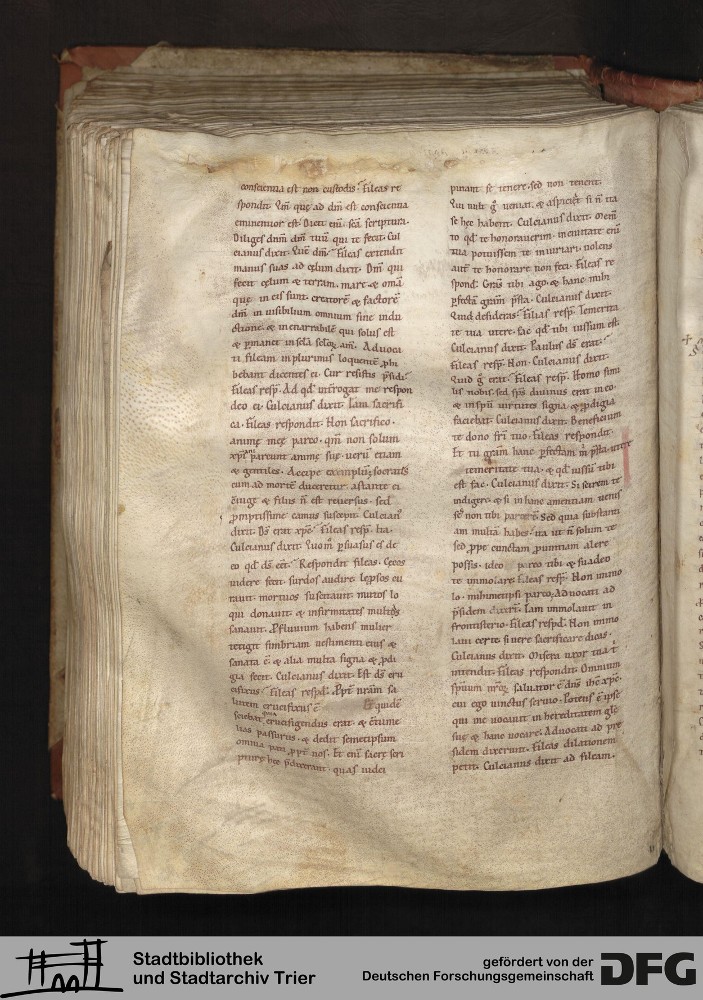 conscientia est non custodis. Fileas re
spondit. Qm̄ que ad dm̄ est conscientia
eminentior est. Dicit eni. scā scriptura.
Diliges dnm̄ dm̄ tuū qui te fecit. Cul
cianus dixit. Quē dm̄. Fileas extendit
manus suas ad cęlum dixit. Dm̄ qui
fecit cęlum & terram. mare & omīa
que in eis sunt. creatorē & factorē
dm̄ inuisibilium omnium sine indu
ctione. & inenarrabilē qui solus est
& pmanet in sclā seloꝝ. am̄. Aduoca
ti fileam inplurimis loquentē phi
bebant dicentes ei. Cur resistis psidi.
Fileas resp̄. Ad qd̄ interrogat me respon
deo ei. Culcianus dixit. Iam sacrifi
ca. Fileas respondit. Non sacrifico.
animę meę parco. qm̄ non solum
xp̄iani parcunt animę suę. uerū etiam
& gentiles. Accipe exemplū socratis
cum ad mortē duceretur. astante ei
cōiuge & filiis n̄ est reuersus. sed
promptissime canus suscepit. Culcian̄
dixit. Ds̄ erat xp̄c. Fileas resp̄. Ita.
Culcianus dixit. Quom̄ psuasus es de
eo qd̄ ds̄ eēt. Respondit fileas. Cęcos
uidere fecit. surdos audire. leprosos cu
rauit. mortuos suscitauit. mutos lo
qui donauit. & infirmitates multas
sanauit. Pfluuium habens mulier
tetigit fimbriam uestimenti eius &
sanata ē. & alia multa signa & pdi
gia fecit. Culcianus dixit. Est ds̄ cru
cifixus. Fileas respd̄. Ppt̄ nrām sa
lutem crucifixus ē & quidē
sciebat quia crucifigendus erat. & c̄tume
lias passurus. & dedit semetipsum
omnia pati ppt̄ nos. Et eni sacrę scri
pturę hec pdixerant. quas iudei
putant se tenere. sed non tenent.
Qui uult g̊ ueniat. & aspiciet si n̄ ita
se hec habent. Culcianus dixit. Mem̄
to qd̄ te honorauerim. incitate enī
tua potuissem te iniuriari. nolens
aut̄ te honorare non feci. Fileas re
spond̄. Gratīs tibi ago. & hanc mihi
pfectā gratīm psta. Culcianus dixit.
Quid desideras. Filias resp̄. Temerita
te tua utere. fac qd̄ tibi iussum est.
Culcianus dixit. Paulus ds̄ erat.
Fileas resp̄. Non. Culcianus dixit.
Quid g̊ erat. Fileas resp̄. Homo simi
lis nobis. sed sps̄ diuinus erat in eo.
& inspū uirtutes signa & pdigia
faciebat. Culcianus dixit. Beneficium
te dono fri tuo. Fileas respondit.
Et tu gratīm hanc pfectam m̄ psta. utere
temeritate tua. & qd̄ iussū tibi
est fac. Culcianus dixit. Si scirem te
indigere. & si in hanc amentiam uenis
se. non tibi parcerē. Sed quia substanti
am multā habes. ita ut n̄ solum te
sed ppe cunctam puintiam alere
possis. ideo parco tibi & suadeo
te immolare. Fileas resp̄. Non immo
lo. mihimetipsi parco. Aduocati ad
psidem dixert̄. Iam immolauit in
frontisterio. Fileas respd̄. Non immo
laui certe. si uere sacrificare dicas.
Culcianus dixit. Misera uxor tua t̄
intendit. Fileas respondit. Omnium
spūum nr̄oꝝ saluator ē dns̄ ihc̄ xpc̄.
cui ego uinctus seruio. Potens ē ipse
qui me uocauit in hereditatem glę
suę & hanc uocare. Aduocati ad prę
sidem dixerunt. Fileas dilationem
petit. Culcianus dixit ad fileam.
Stadtbibliothek
und Stadtarchiv Trier
gefördert von der
Deutschen Forschungsgemeinschaft
DFG